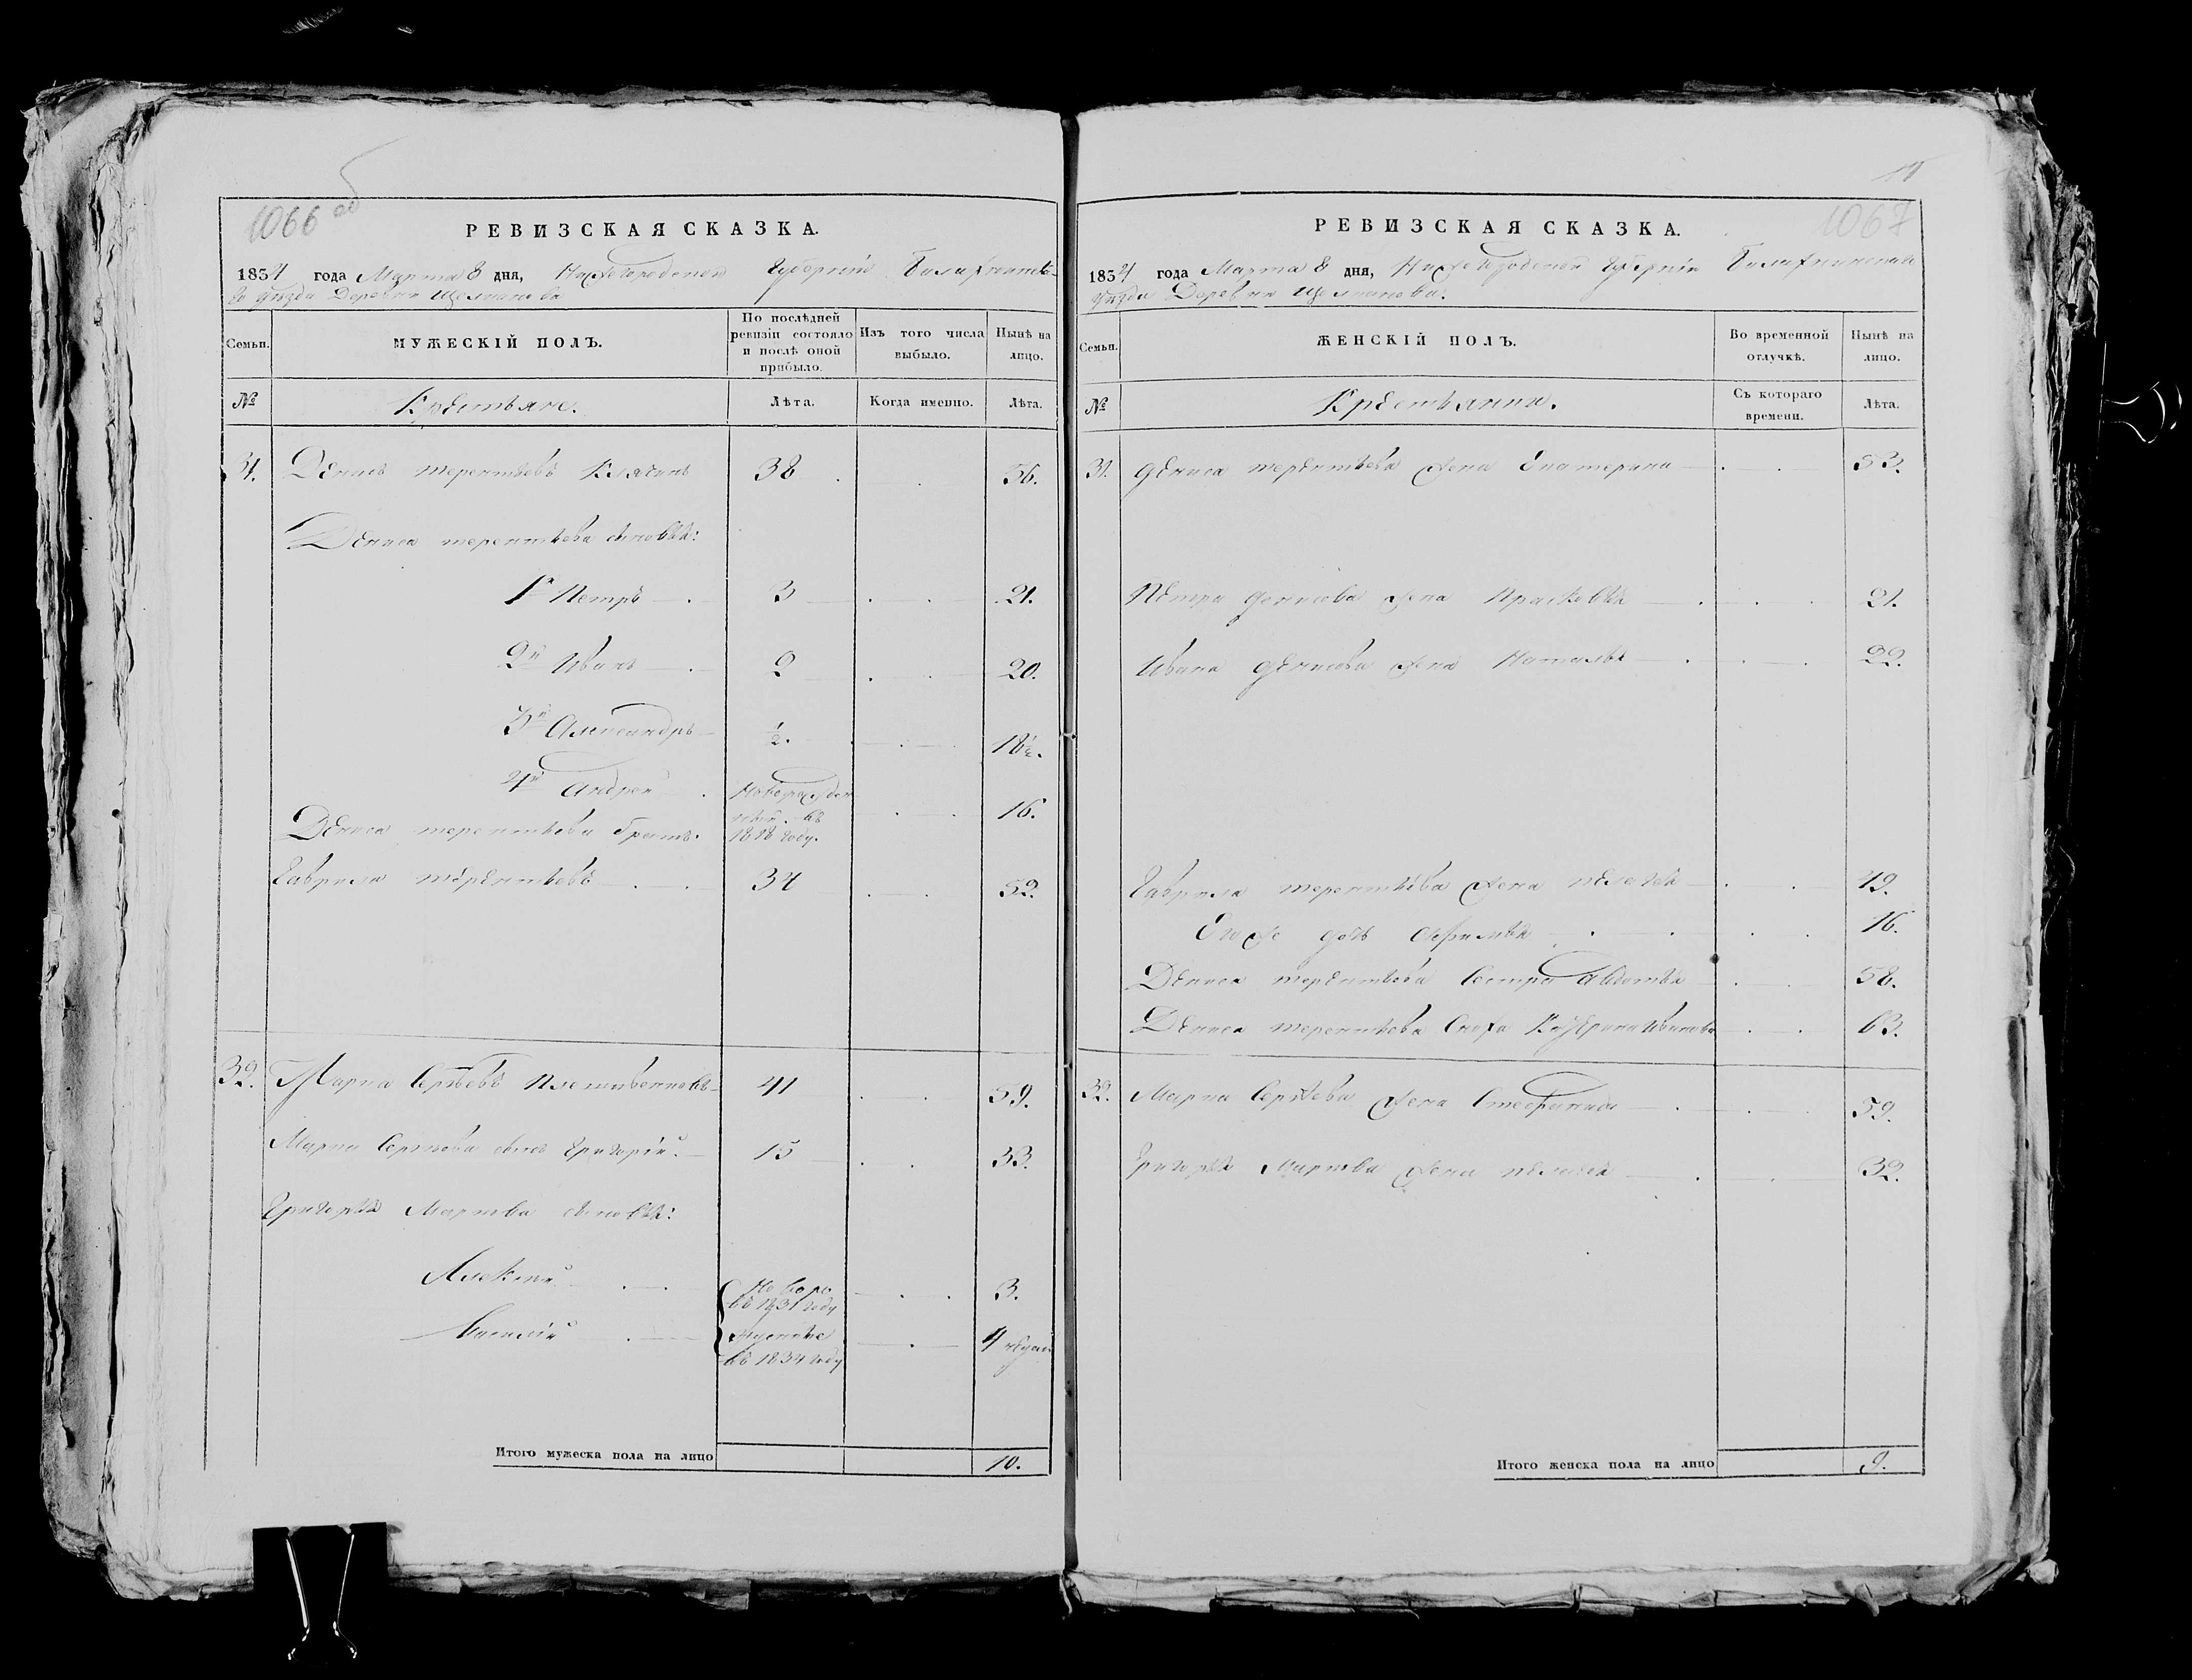 1066 об
РЕВИЗСКАЯ СКАЗКА.
1834 года Марта 8 дня, Нижегородской Губернии Балахнинска-
го Уезда Деревни Щелканова
Семьи.
МУЖЕСКІЙ ПОЛЪ.
По послѣдней ревизіи состояло и послѣ оной прибыло.
Изъ того числа выбыло.
Нынѣ на лицо.
№
Крестьяне.
Лѣта.
Когда именно.
Лѣта.
31. Денисъ терентьевъ 38 56.
Дениса терентьева сыновья:
1й Петръ 3 21.
2й Иванъ 2 20.
3й Александръ 1/2. 18 1/2.
4й Андрей Новорожден
ный въ 16.
Дениса терентьева братъ. 1818 году.
Гаврила терентьевъ 34 52.
32. Марка Сергѣевъ 41 59.
Марки Сергѣева сынъ Григорій 15 33.
Григорья Маркова сыновья:
Алексѣй Новоро
въ 1831 году 3.
Василій
въ 1834 году 4 недели
Итого мужеска пола на лицо 10.
1067
РЕВИЗСКАЯ СКАЗКА.
1834 года Марта 8 дня, Нижегородской Губерніи Балахнинскаго
Уезда Деревни Щелканова.
Семьи.
ЖЕНСКІЙ ПОЛЪ.
Во временной отлучкѣ.
Нынѣ на лицо.
№
Крестьянки.
Съ котораго времени.
Лѣта.
31. Дениса терентьева жена Екатерина 53.
Петра денисова жена Прасковья 21.
Ивана денисова жена Наталья 22.
Гаврила терентьева жена пелагея 49.
Его же дочь Афимья 16.
Дениса терентьева Сестра Авдотья 58.
Дениса терентьева Сноха Катерина Иванова 63.
32. Марка Сергѣева жена Стефанида 59.
Григорья Маркова жена пелагея 32.
Итого женска пола на лицо 9.